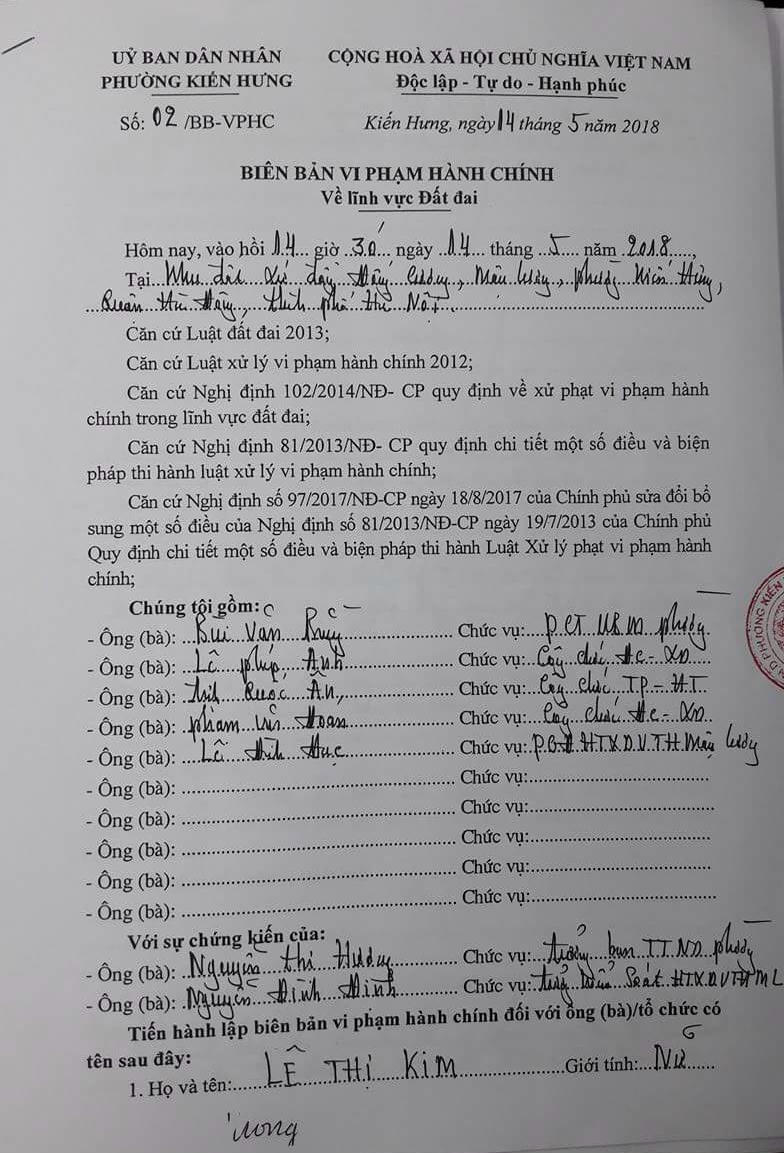 UỶ BAN DÂN NHÂN
PHƯỜNG KIẾN HƯNG
CỘNG HOÀ XÃ HỘI CHỦ NGHĨA VIỆT NAM
Độc lập - Tự do - Hạnh phúc
Số: 02 /BB-VPHC
Kiến Hưng, ngày 14 tháng 5 năm 2018
BIÊN BẢN VI PHẠM HÀNH CHÍNH
Về lĩnh vực Đất đai
Hôm nay, vào hồi 14 giờ 30 ngày 14 tháng 5 năm 2018,
Tại Khu đất Xứ đồng Lương, Mậu Lương, phường Kiến Hưng,
Quận Hà Đông, thành phố Hà Nội
Căn cứ Luật đất đai 2013;
Căn cứ Luật xử lý vi phạm hành chính 2012;
Căn cứ Nghị định 102/2014/NĐ- CP quy định về xử phạt vi phạm hành
chính trong lĩnh vực đất đai;
Căn cứ Nghị định 81/2013/NĐ- CP quy định chi tiết một số điều và biện
pháp thi hành luật xử lý vi phạm hành chính;
Căn cứ Nghị định số 97/2017/NĐ-CP ngày 18/8/2017 của Chính phủ sửa đổi bổ
sung một số điều của Nghị định số 81/2013/NĐ-CP ngày 19/7/2013 của Chính phủ
Quy định chi tiết một số điều và biện pháp thi hành Luật Xử lý phạt vi phạm hành
chính;
Chúng tôi gồm:
- Ông (bà): Bùi Văn Chức vụ: PCT UBND phường
- Ông (bà): Lê pháp Anh Chức vụ: Công chức ĐC-XD
- Ông (bà): Quốc Ân, Chức vụ: Công chức TP-HT
- Ông (bà): Phạm Văn Hoan Chức vụ: Công chức ĐC-XD
- Ông (bà): Lê Đình Chức vụ: PGĐ HTXDVTH Mậu Lương
- Ông (bà): Chức vụ:
- Ông (bà): Chức vụ:
- Ông (bà): Chức vụ:
- Ông (bà): Chức vụ:
- Ông (bà): Chức vụ:
Với sự chứng kiến của:
- Ông (bà): Nguyễn Thị Hương Chức vụ: trưởng ban TTND phường
- Ông (bà): Nguyễn Đình Chức vụ: Soát HTXDVTHML
Tiến hành lập biên bản vi phạm hành chính đối với ông (bà)/tổ chức có
tên sau đây:
1. Họ và tên: LÊ THỊ KIM Giới tính: Nữ